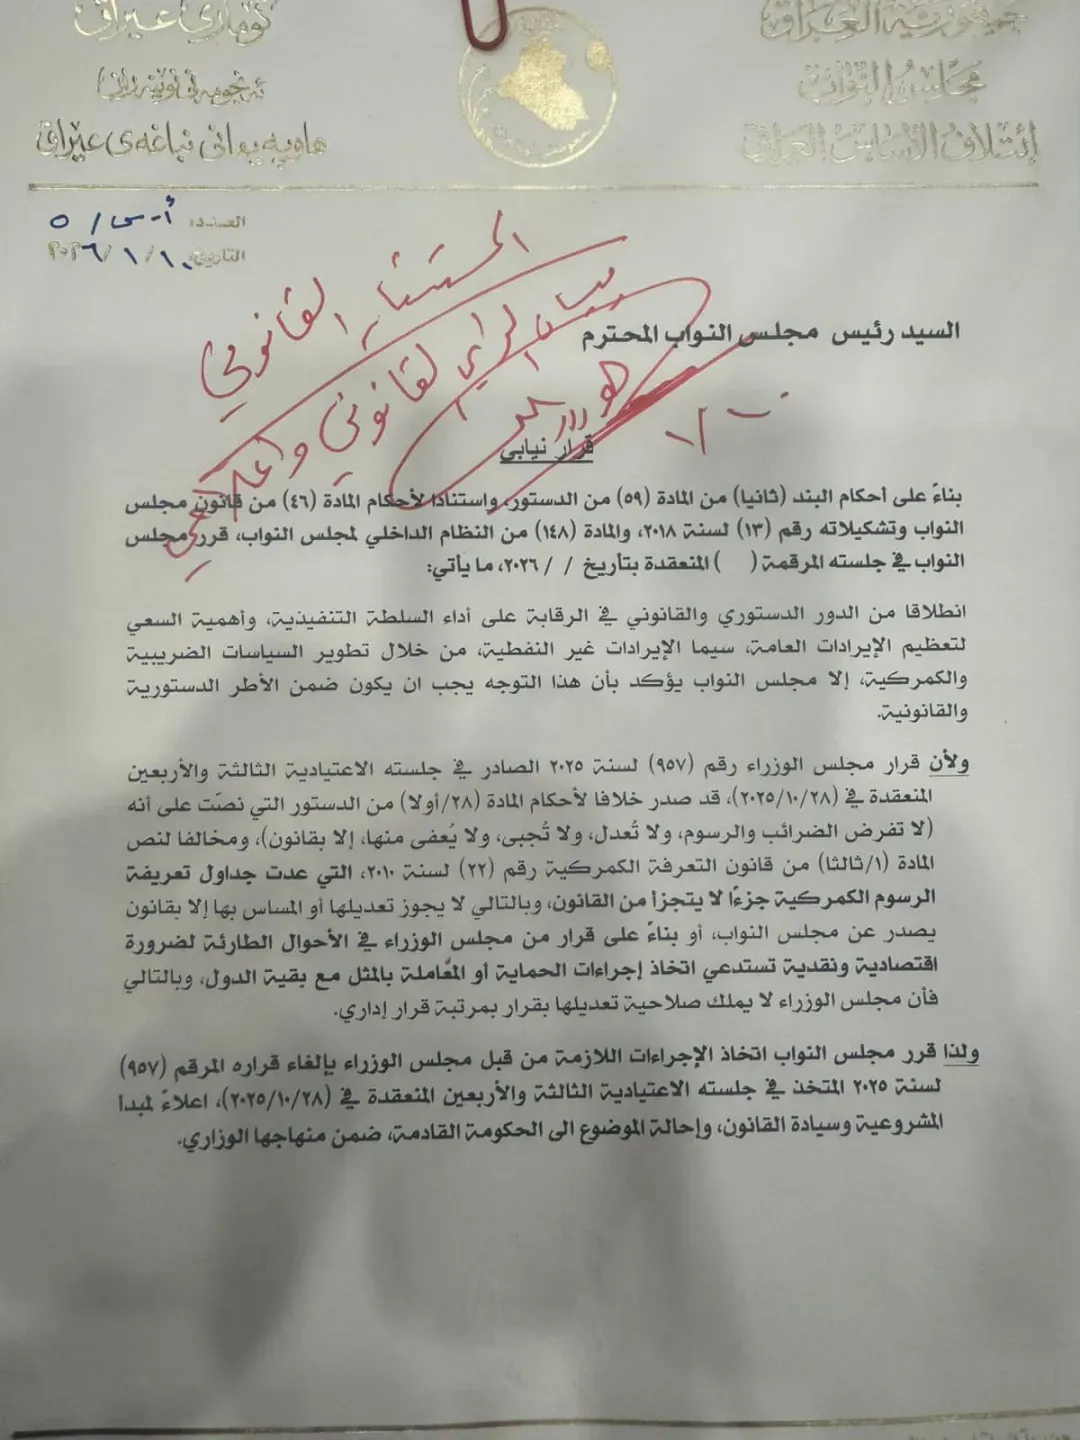 جمهورية العراق
مجلس النواب
إئتلاف الأساس العراقي
كۆماری عێراق
هاوپەیمانی بناغەی عێراق
العدد: أ.س/ ٥
التاريخ: ١٠/ ١/ ٢٠٢٦
المستشار القانوني
لبيان الرأي القانوني واعلامي
السيد رئيس مجلس النواب المحترم
قرار نيابي
بناءً على أحكام البند (ثانيا) من المادة (٥٩) من الدستور، واستنادا لأحكام المادة (٤٦) من قانون مجلس
النواب وتشكيلاته رقم (١٣) لسنة ٢٠١٨، والمادة (١٤٨) من النظام الداخلي لمجلس النواب، قرر مجلس
النواب في جلسته المرقمة ( ) المنعقدة بتاريخ / / ٢٠٢٦، ما يأتي:
انطلاقا من الدور الدستوري والقانوني في الرقابة على أداء السلطة التنفيذية، وأهمية السعي
لتعظيم الإيرادات العامة، سيما الإيرادات غير النفطية، من خلال تطوير السياسات الضريبية
والكمركية، إلا مجلس النواب يؤكد بأن هذا التوجه يجب ان يكون ضمن الأطر الدستورية
والقانونية.
ولأن قرار مجلس الوزراء رقم (٩٥٧) لسنة ٢٠٢٥ الصادر في جلسته الاعتيادية الثالثة والأربعين
المنعقدة في (٢٠٢٥/١٠/٢٨)، قد صدر خلافا لأحكام المادة (٢٨/أولا) من الدستور التي نصّت على أنه
(لا تفرض الضرائب والرسوم، ولا تُعدل، ولا تُجبى، ولا يُعفى منها، إلا بقانون)، ومخالفا لنص
المادة (١/ثالثا) من قانون التعرفة الكمركية رقم (٢٢) لسنة ٢٠١٠، التي عدت جداول تعريفة
الرسوم الكمركية جزءًا لا يتجزأ من القانون، وبالتالي لا يجوز تعديلها أو المساس بها إلا بقانون
يصدر عن مجلس النواب، أو بناءً على قرار من مجلس الوزراء في الأحوال الطارئة لضرورة
اقتصادية ونقدية تستدعي اتخاذ إجراءات الحماية أو المُعاملة بالمثل مع بقية الدول، وبالتالي
فأن مجلس الوزراء لا يملك صلاحية تعديلها بقرار بمرتبة قرار إداري.
ولذا قرر مجلس النواب اتخاذ الإجراءات اللازمة من قبل مجلس الوزراء بإلغاء قراره المرقم (٩٥٧)
لسنة ٢٠٢٥ المتخذ في جلسته الاعتيادية الثالثة والأربعين المنعقدة في (٢٠٢٥/١٠/٢٨)، اعلاءً لمبدا
المشروعية وسيادة القانون، وإحالة الموضوع الى الحكومة القادمة، ضمن منهاجها الوزاري.